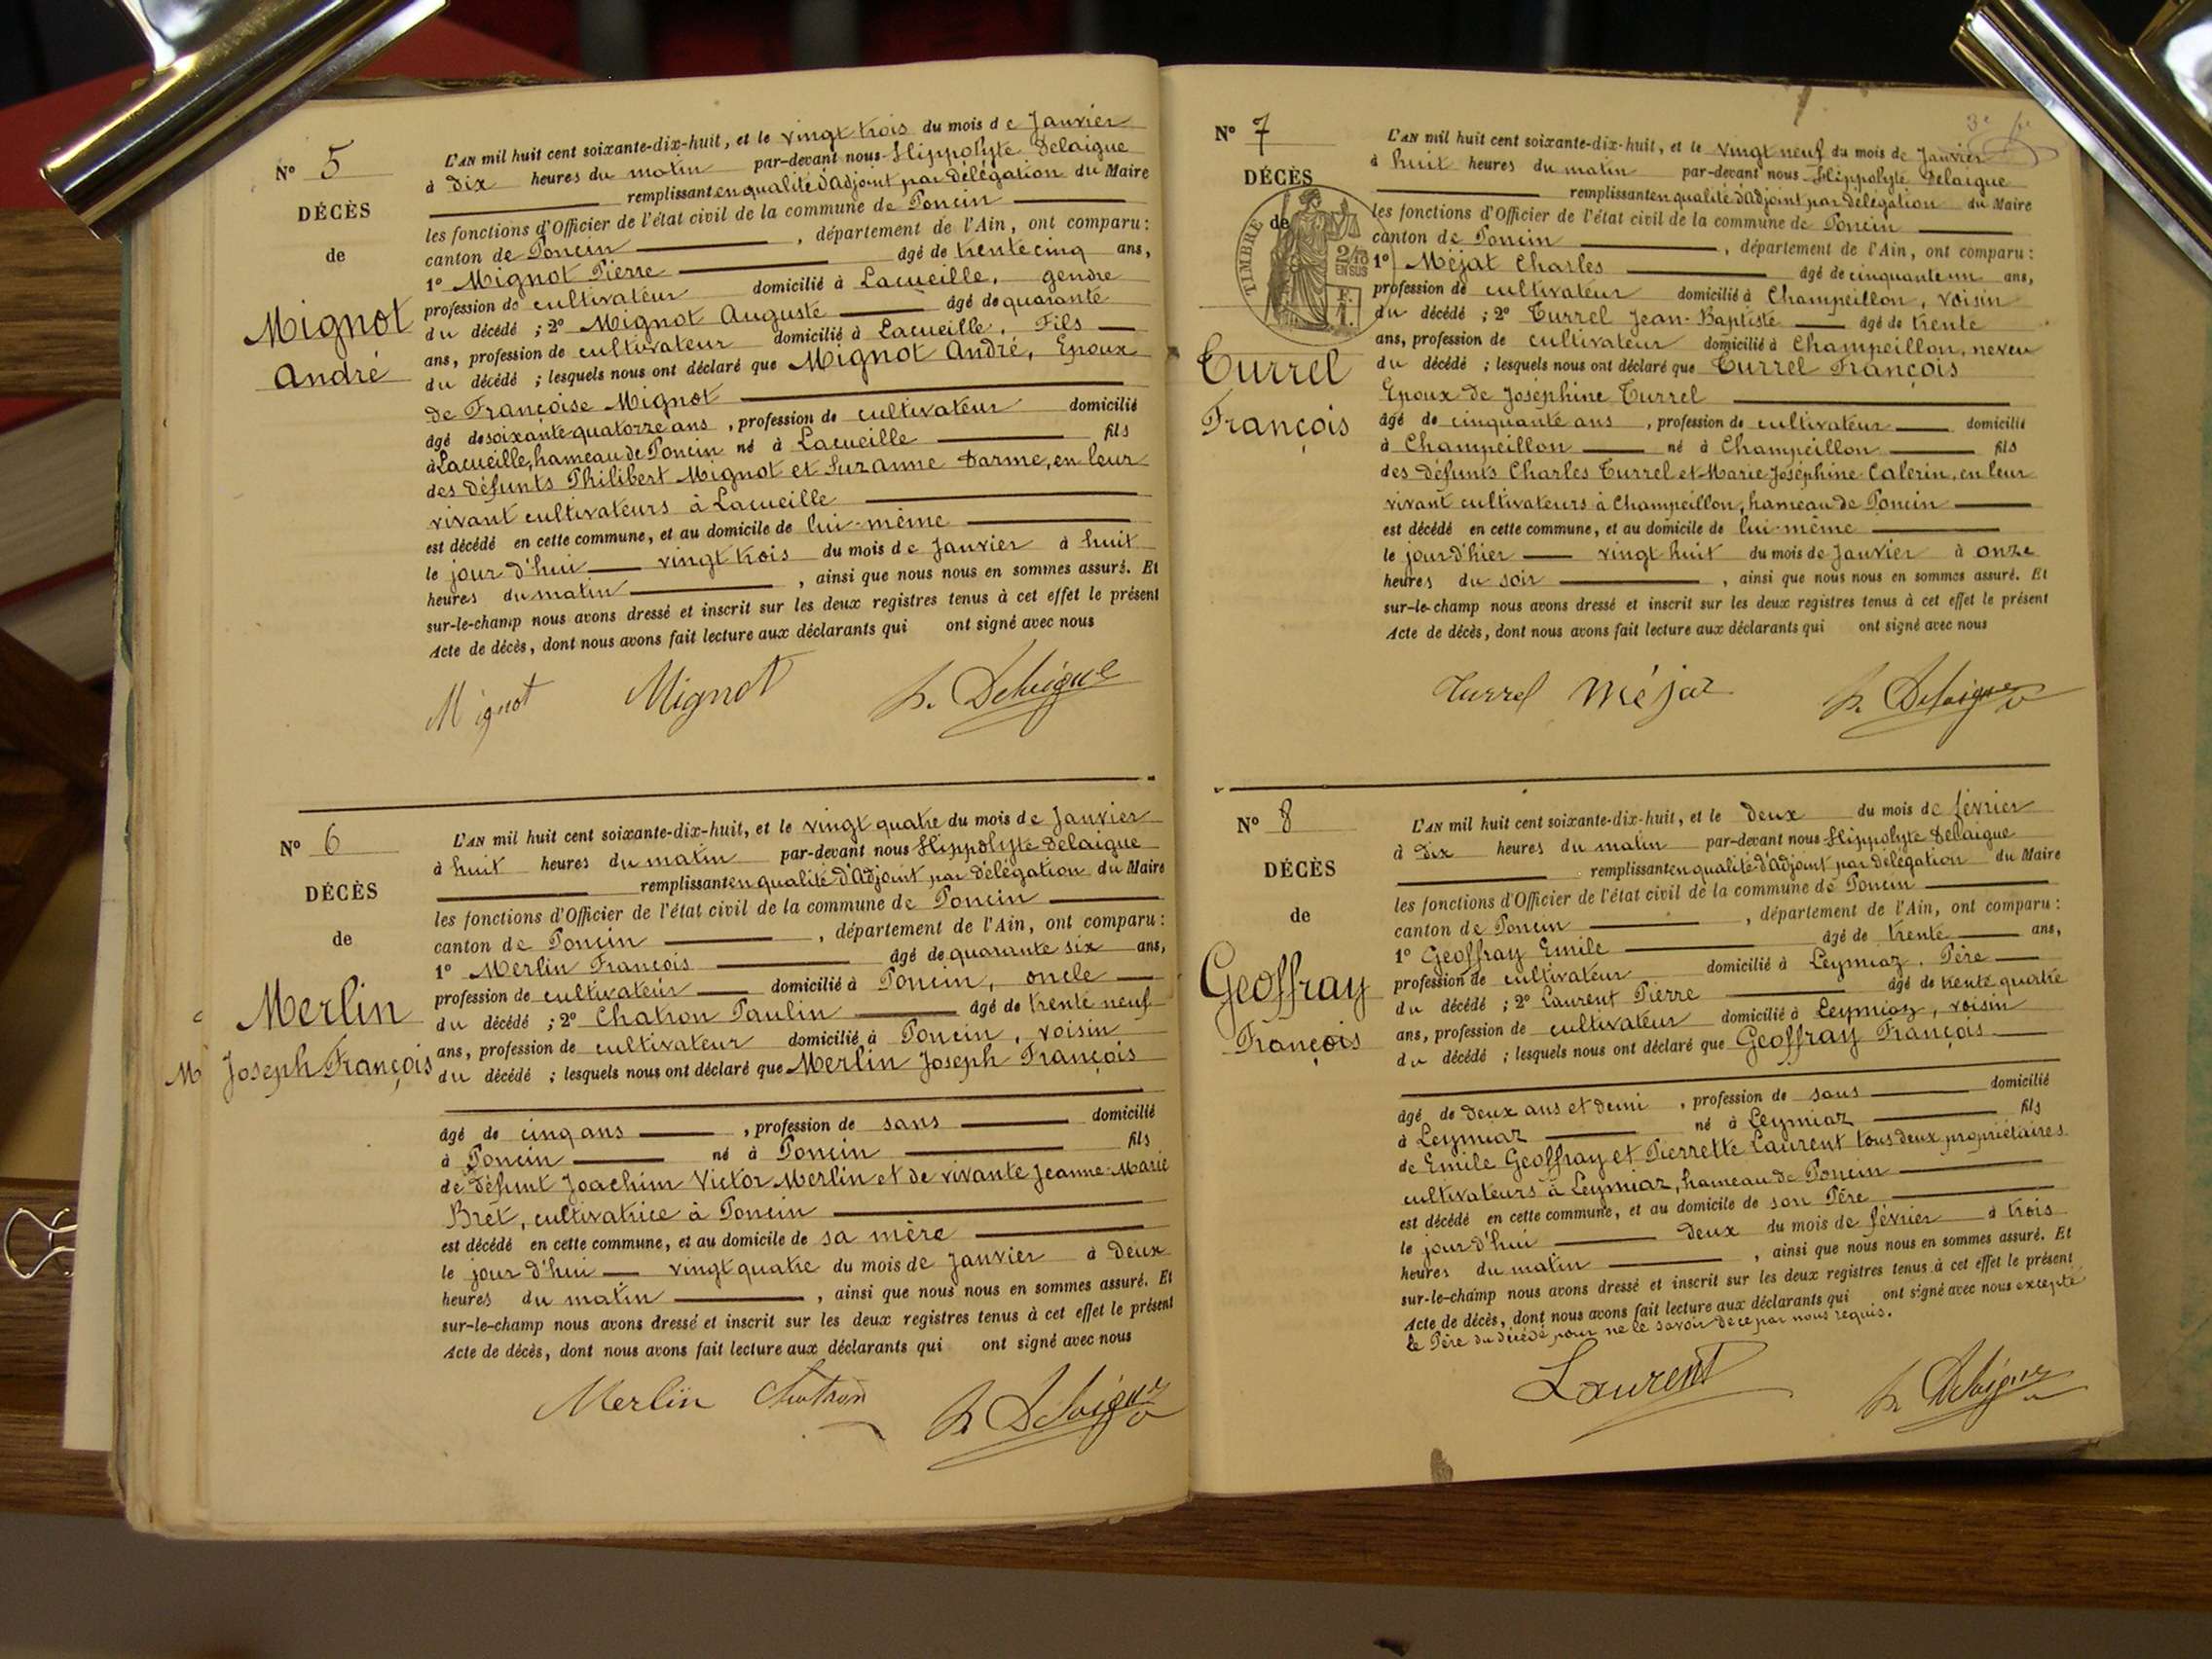 N° 5
DÉCÈS
de
Mignot
André
L'AN mil huit cent soixante-dix-huit, et le vingt trois du mois de Janvier
à dix heures du matin par-devant nous Hippolyte Delaigue
remplissant en qualité d'adjoint par délégation du Maire
les fonctions d'Officier de l'état civil de la commune de Poncin
canton de Poncin, département de l'Ain, ont comparu :
1° Mignot Pierre âgé de trente cinq ans,
profession de cultivateur domicilié à Lacueille, gendre
du décédé ; 2° Mignot Auguste âgé de quarante
ans, profession de cultivateur domicilié à Lacueille, Fils
du décédé ; lesquels nous ont déclaré que Mignot André, Epoux
de Françoise Mignot
âgé de soixante quatorze ans, profession de cultivateur domicilié
à Lacueille, hameau de Poncin né à Lacueille fils
des défunts Philibert Mignot et Suzanne Darme, en leur
vivant cultivateurs à Lacueille
est décédé en cette commune, et au domicile de lui-même
le jour d'hui vingt trois du mois de Janvier à huit
heures du matin, ainsi que nous nous en sommes assuré. Et
sur-le-champ nous avons dressé et inscrit sur les deux registres tenus à cet effet le présent
Acte de décès, dont nous avons fait lecture aux déclarants qui ont signé avec nous
Mignot Mignot h. Delaigue
N° 6
DÉCÈS
de
Merlin
Joseph François
L'AN mil huit cent soixante-dix-huit, et le vingt quatre du mois de Janvier
à huit heures du matin par-devant nous Hippolyte Delaigue
remplissant en qualité d'Adjoint par délégation du Maire
les fonctions d'Officier de l'état civil de la commune de Poncin
canton de Poncin, département de l'Ain, ont comparu :
1° Merlin François âgé de quarante six ans,
profession de cultivateur domicilié à Poncin, oncle
du décédé ; 2° Chatron Paulin âgé de trente neuf
ans, profession de cultivateur domicilié à Poncin, voisin
du décédé ; lesquels nous ont déclaré que Merlin Joseph François
âgé de cinq ans, profession de sans domicilié
à Poncin né à Poncin fils
de défunt Joachim Victor Merlin et de vivante Jeanne-Marie
Bret, cultivatrice à Poncin
est décédé en cette commune, et au domicile de sa mère
le jour d'hui vingt quatre du mois de Janvier à deux
heures du matin, ainsi que nous nous en sommes assuré. Et
sur-le-champ nous avons dressé et inscrit sur les deux registres tenus à cet effet le présent
Acte de décès, dont nous avons fait lecture aux déclarants qui ont signé avec nous
Merlin Chatron h Delaigue
N° 7
DÉCÈS
de
TIMBRE
2/10
EN SUS
Turrel
François
L'AN mil huit cent soixante-dix-huit, et le vingt neuf du mois de Janvier
à huit heures du matin par-devant nous Hippolyte Delaigue
remplissant en qualité d'adjoint par délégation du Maire
les fonctions d'Officier de l'état civil de la commune de Poncin
canton de Poncin, département de l'Ain, ont comparu :
1° Méjat Charles âgé de cinquante un ans,
profession de cultivateur domicilié à Champeillon, voisin
du décédé ; 2° Turrel Jean-Baptiste âgé de trente
ans, profession de cultivateur domicilié à Champeillon, neveu
du décédé ; lesquels nous ont déclaré que Turrel François
Epoux de Joséphine Turrel
âgé de cinquante ans, profession de cultivateur domicilié
à Champeillon né à Champeillon fils
des défunts Charles Turrel et Marie Joséphine Calerin, en leur
vivant cultivateurs à Champeillon, hameau de Poncin
est décédé en cette commune, et au domicile de lui-même
le jour d'hier vingt huit du mois de Janvier à onze
heures du soir, ainsi que nous nous en sommes assuré. Et
sur-le-champ nous avons dressé et inscrit sur les deux registres tenus à cet effet le présent
Acte de décès, dont nous avons fait lecture aux déclarants qui ont signé avec nous
Turrel Méjat h. Delaigue
N° 8
DÉCÈS
de
Geoffray
François
L'AN mil huit cent soixante-dix-huit, et le deux du mois de février
à dix heures du matin par-devant nous Hippolyte Delaigue
remplissant en qualité d'Adjoint par délégation du Maire
les fonctions d'Officier de l'état civil de la commune de Poncin
canton de Poncin, département de l'Ain, ont comparu :
1° Geoffray Emile âgé de trente ans,
profession de cultivateur domicilié à Leymiaz, Père
du décédé ; 2° Laurent Pierre âgé de trente quatre
ans, profession de cultivateur domicilié à Leymiaz, voisin
du décédé ; lesquels nous ont déclaré que Geoffray François
âgé de deux ans et demi, profession de sans domicilié
à Leymiaz né à Leymiaz fils
de Emile Geoffray et Pierrette Laurent tous deux propriétaires
cultivateurs à Leymiaz, hameau de Poncin
est décédé en cette commune, et au domicile de son Père
le jour d'hui deux du mois de février à trois
heures du matin, ainsi que nous nous en sommes assuré. Et
sur-le-champ nous avons dressé et inscrit sur les deux registres tenus à cet effet le présent
Acte de décès, dont nous avons fait lecture aux déclarants qui ont signé avec nous excepté
le Père du décédé pour ne le savoir de ce par nous requis.
Laurent h. Delaigue